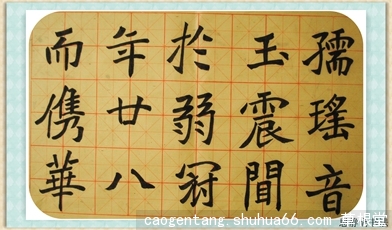 孺瑤音
玉震聞
扵弱冠
年廿八
而儁華
caogentang.shuhua66.com 草根堂